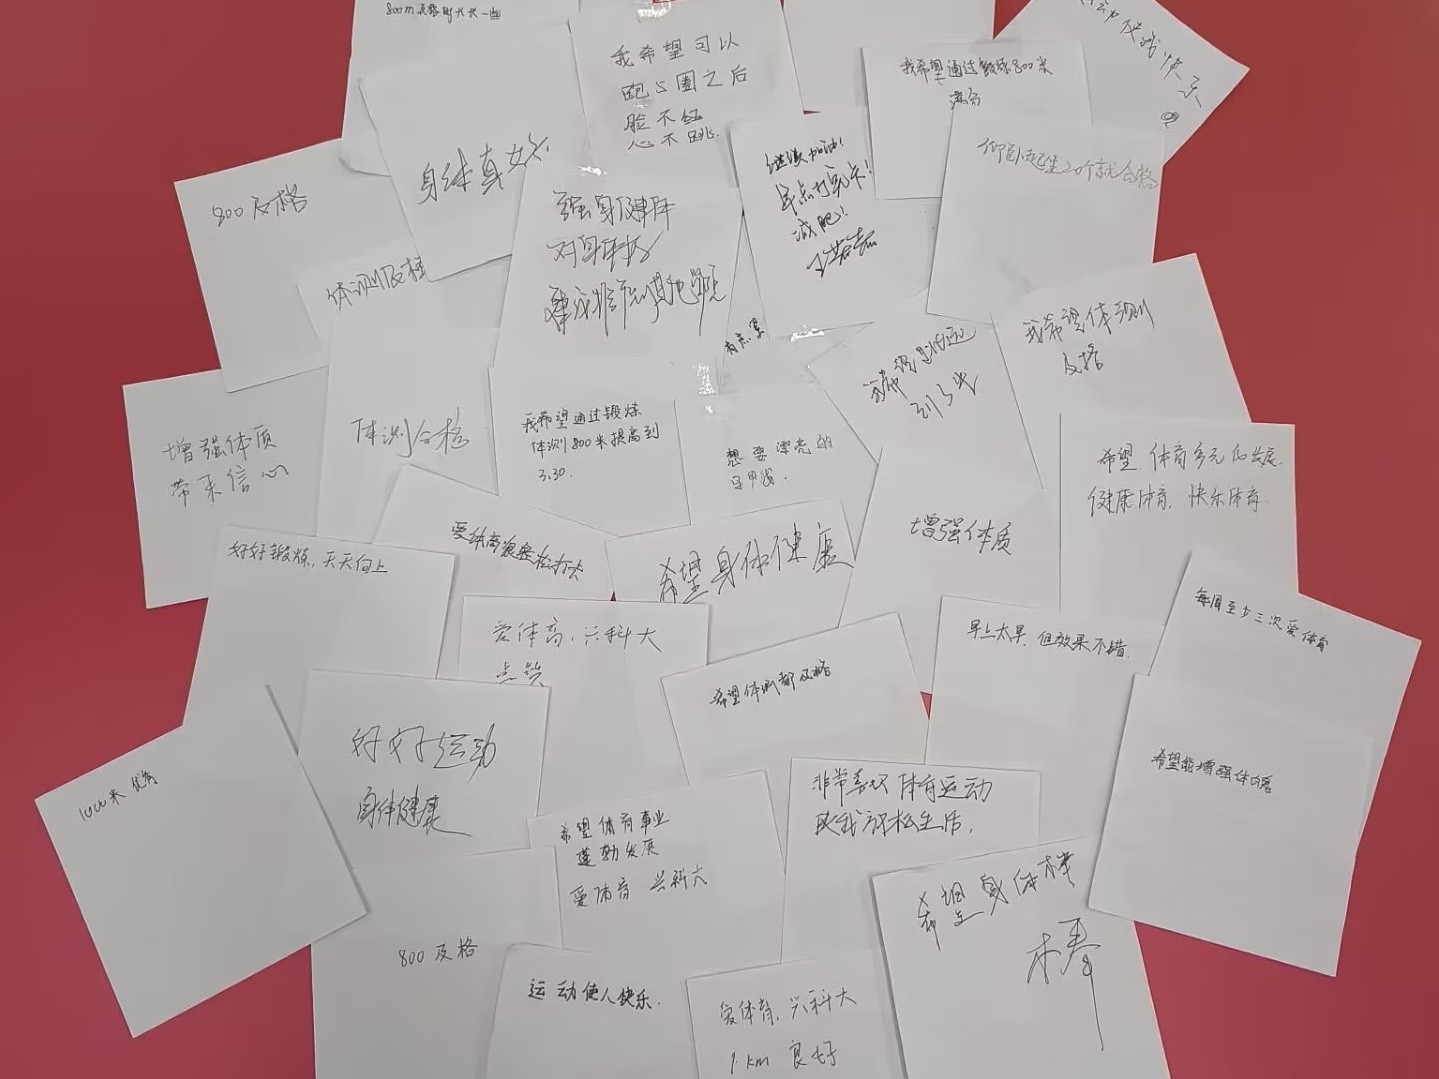 800m及格时长长一些
我希望可以
跑5圈之后
脸不红
心不跳.
我希望通过锻炼800米
满分
快乐
身体真好
800及格
继续加油!
早点打完卡!
减肥!
仰卧起坐20个就合格
强身健体
对身体好
体测及格
我希望体测
及格
有点累
到3米
增强体质
带来信心
体测合格
我希望通过锻炼
体测800米提高到
3.30.
想要漂亮的
马甲线.
希望 体育多元化发展.
健康体育. 快乐体育.
增强体质
好好锻炼, 天天向上
希望身体健康
爱体育, 兴科大
点赞
早上太早, 但效果不错.
每周至少三次爱体育
希望体测都及格
好好运动
身体健康
1000米 优秀
希望能增强体魄
非常喜欢体育运动
使我放松生活.
希望体育事业
蓬勃发展
爱体育 兴科大
希望身体棒
棒
800及格
运动使人快乐.
爱体育, 兴科大
1km 良好